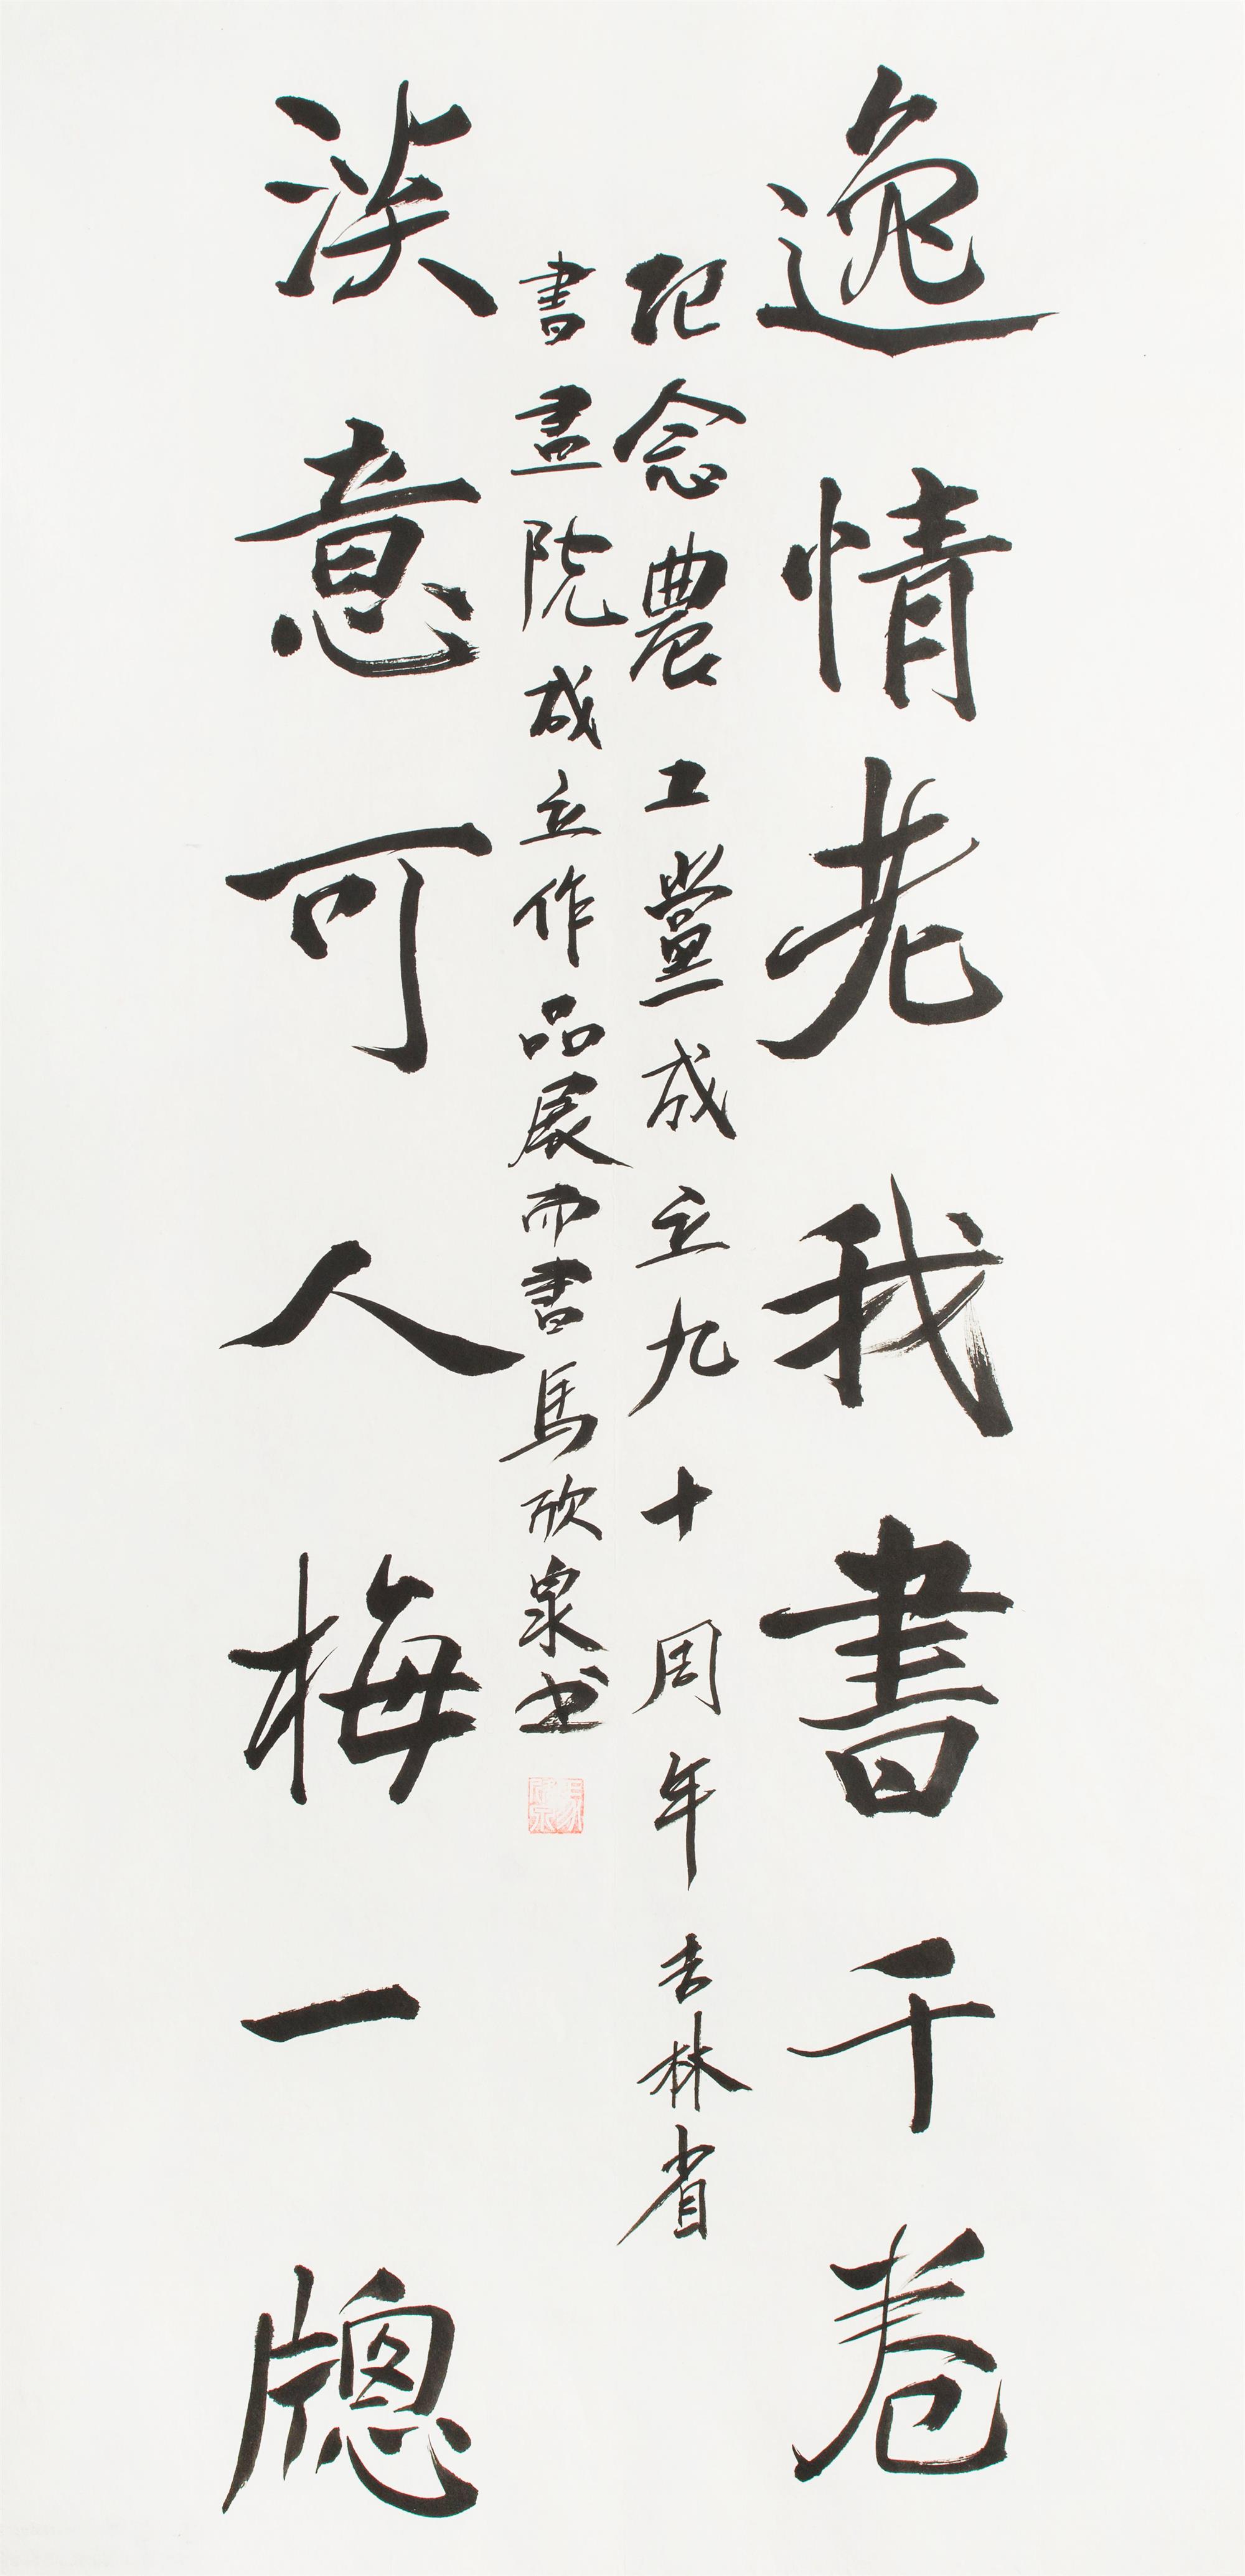 逸情老我書千卷
紀念農工黨成立九十周年吉林省
書畫院成立作品展而書馬欣泉书
淡意可人梅一牕